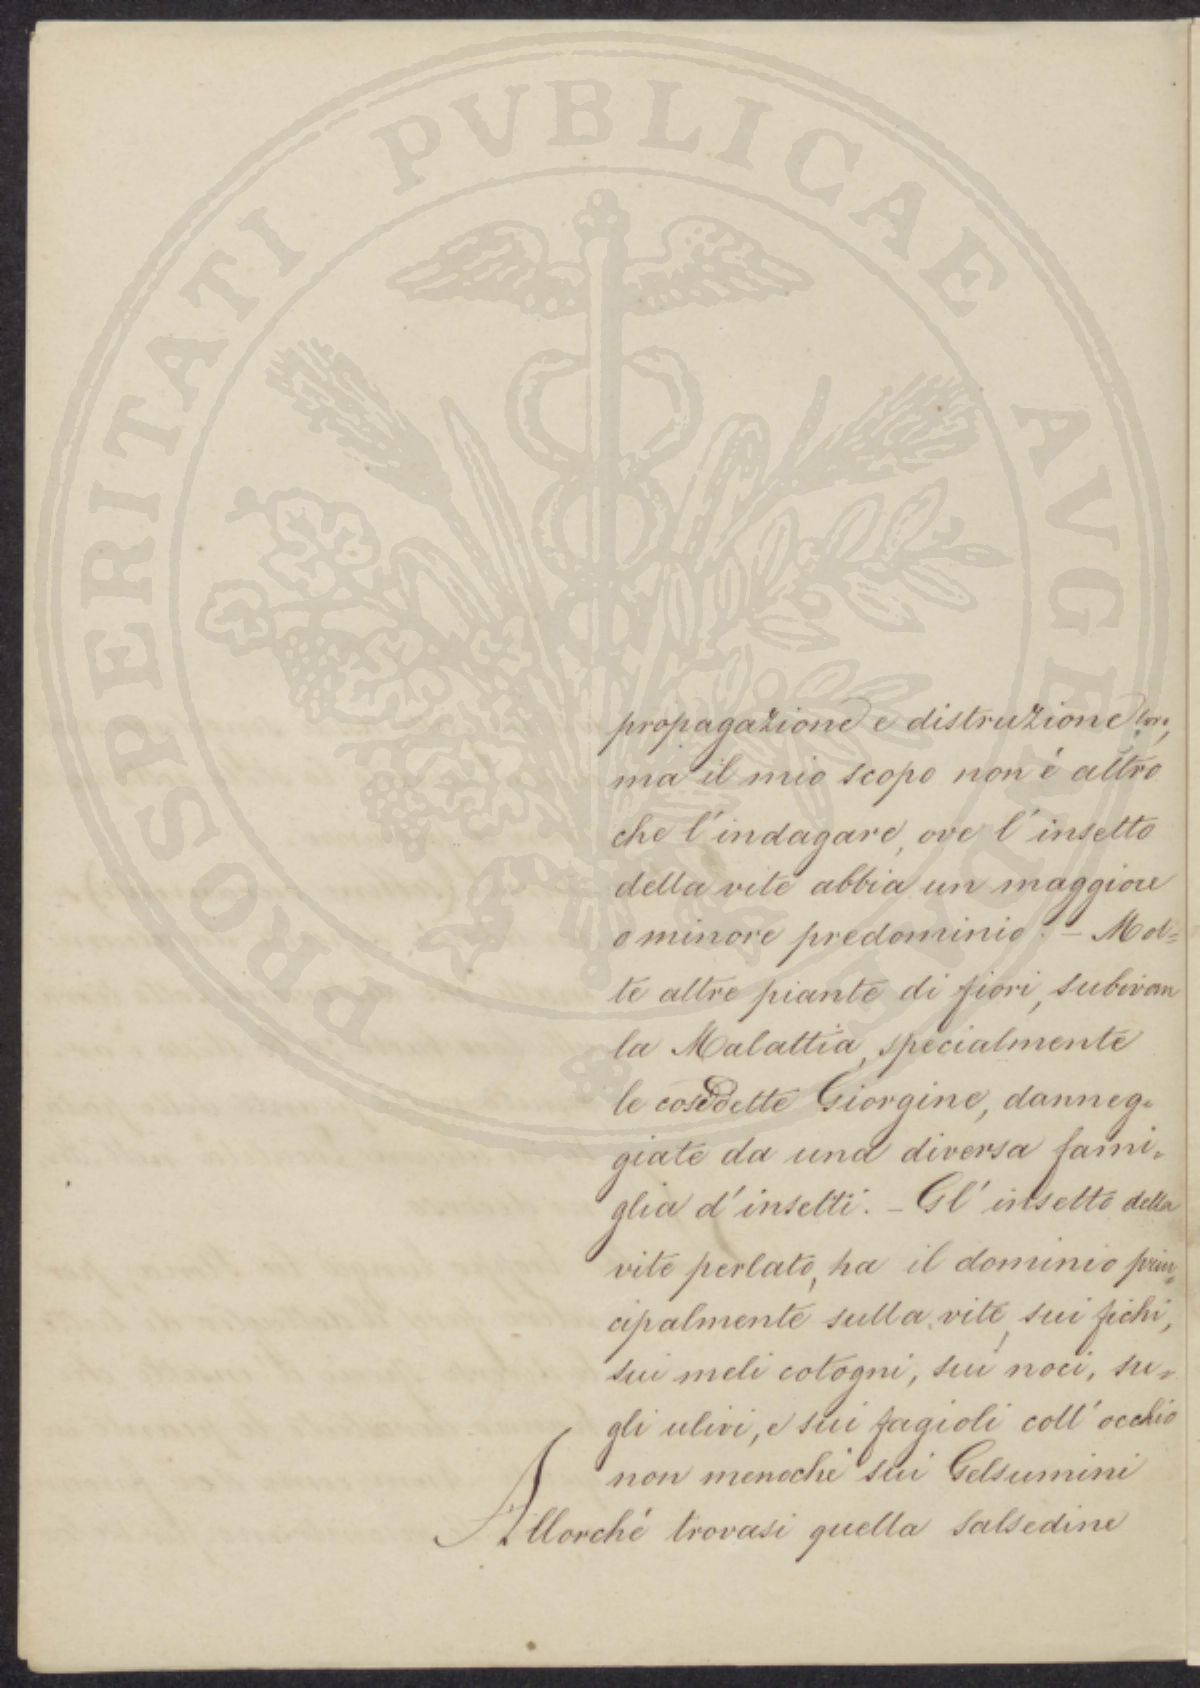 PROSPERITATI PVBLICAE AVGENDAE
propagazione e distruzione loro,
ma il mio scopo non é altro
che l'indagare, ove l'insetto
della vite abbia un maggiore
o minore predominio. - Mol=
te altre piante di fiori, subivan
la Malattia, specialmente
le cosidette Giorgine, danneg=
giate da una diversa fami=
glia d'insetti. - Gl'insetto della
vite perlato, ha il dominio prin=
cipalmente sulla vite, sui fichi,
sui meli cotogni, sui noci, su=
gli ulivi, e sui fagioli coll'occhio
non menoché sui Gelsumini
Allorché trovasi quella salsedine